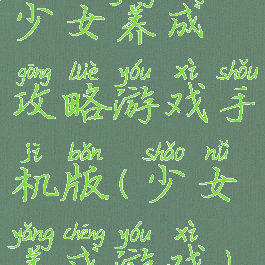 少女养成
gōng lüè yóu xì shǒu
攻略游戏手
jī bǎn shǎo nǚ
机版(少女
yǎng chéng yóu xì
养成游戏)